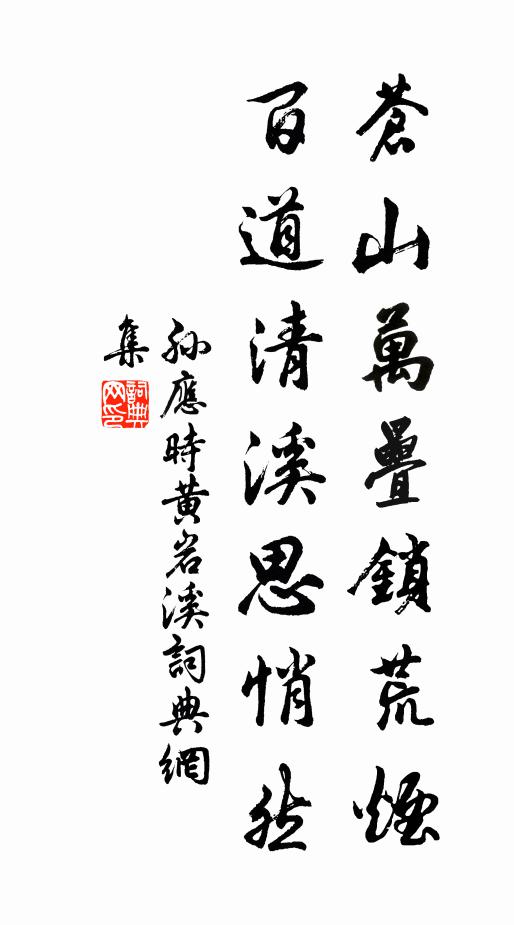 蒼山萬疊鎖荒煙
百道清溪思悄然
孫應時黄岩溪詞典網
集
詞典網印